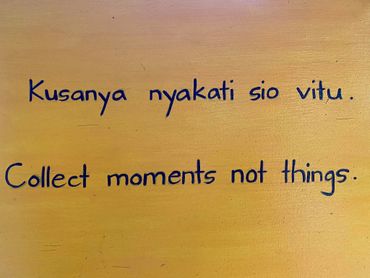 Kusanya nyakati sio vitu.
Collect moments not things.